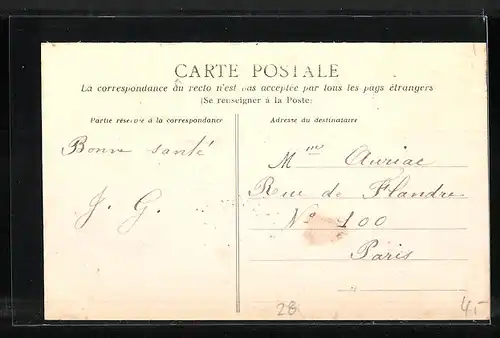 CARTE POSTALE
La correspondance du recto n'est pas acceptée par tous les pays étrangers
(Se renseigner à la Poste)
Partie réservée à la correspondance
Adresse du destinataire
Bonne santé
J. G.
Mme Auriac
Rue de Flandre
No 100
Paris
28
4,-